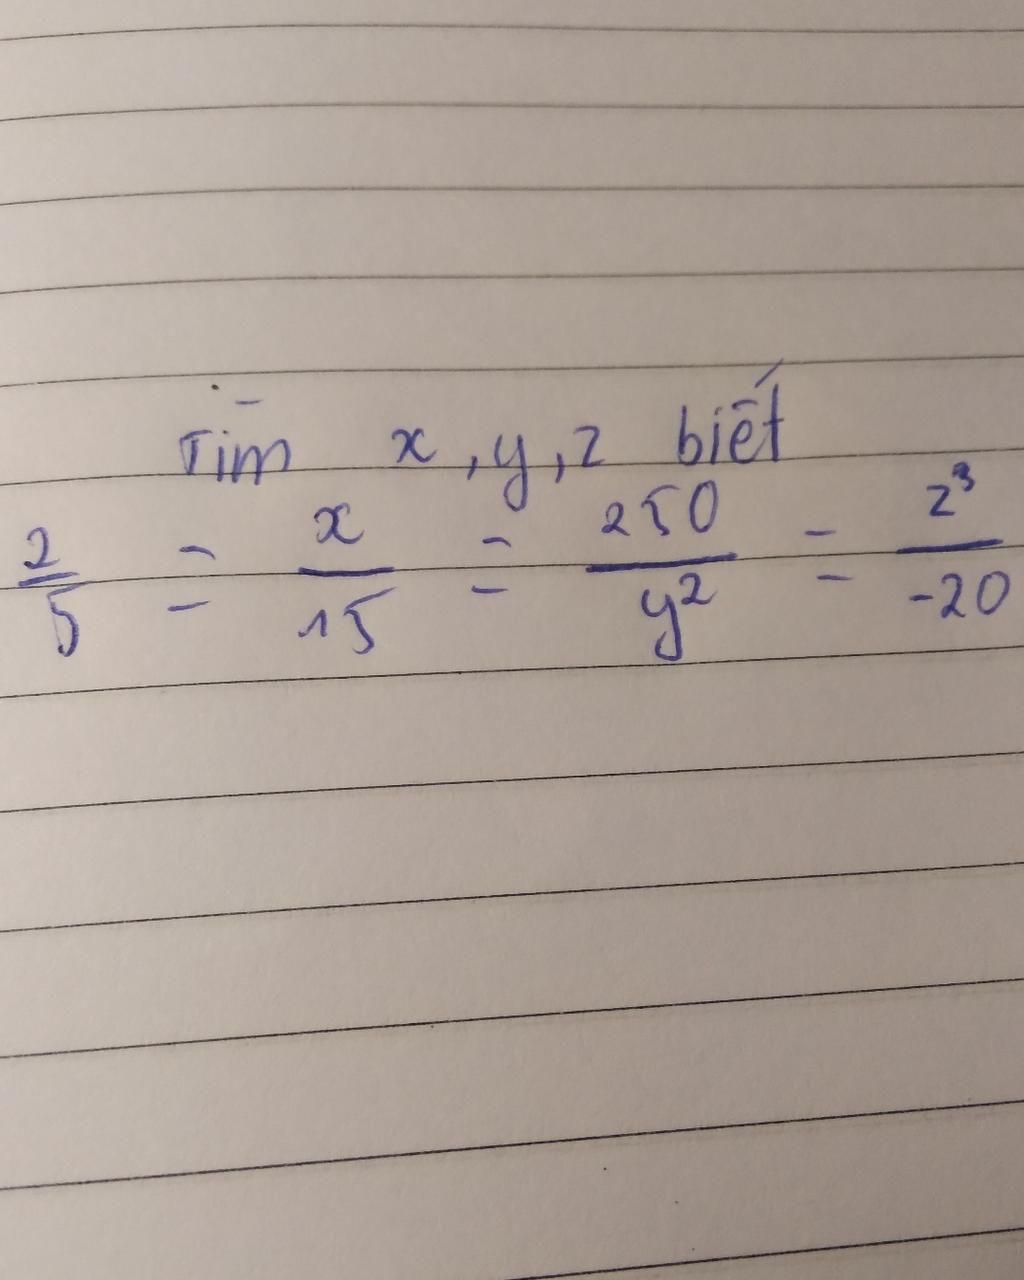 Tìm x, y, z biết
2/5 = x/15 = 250/y² = z³/-20